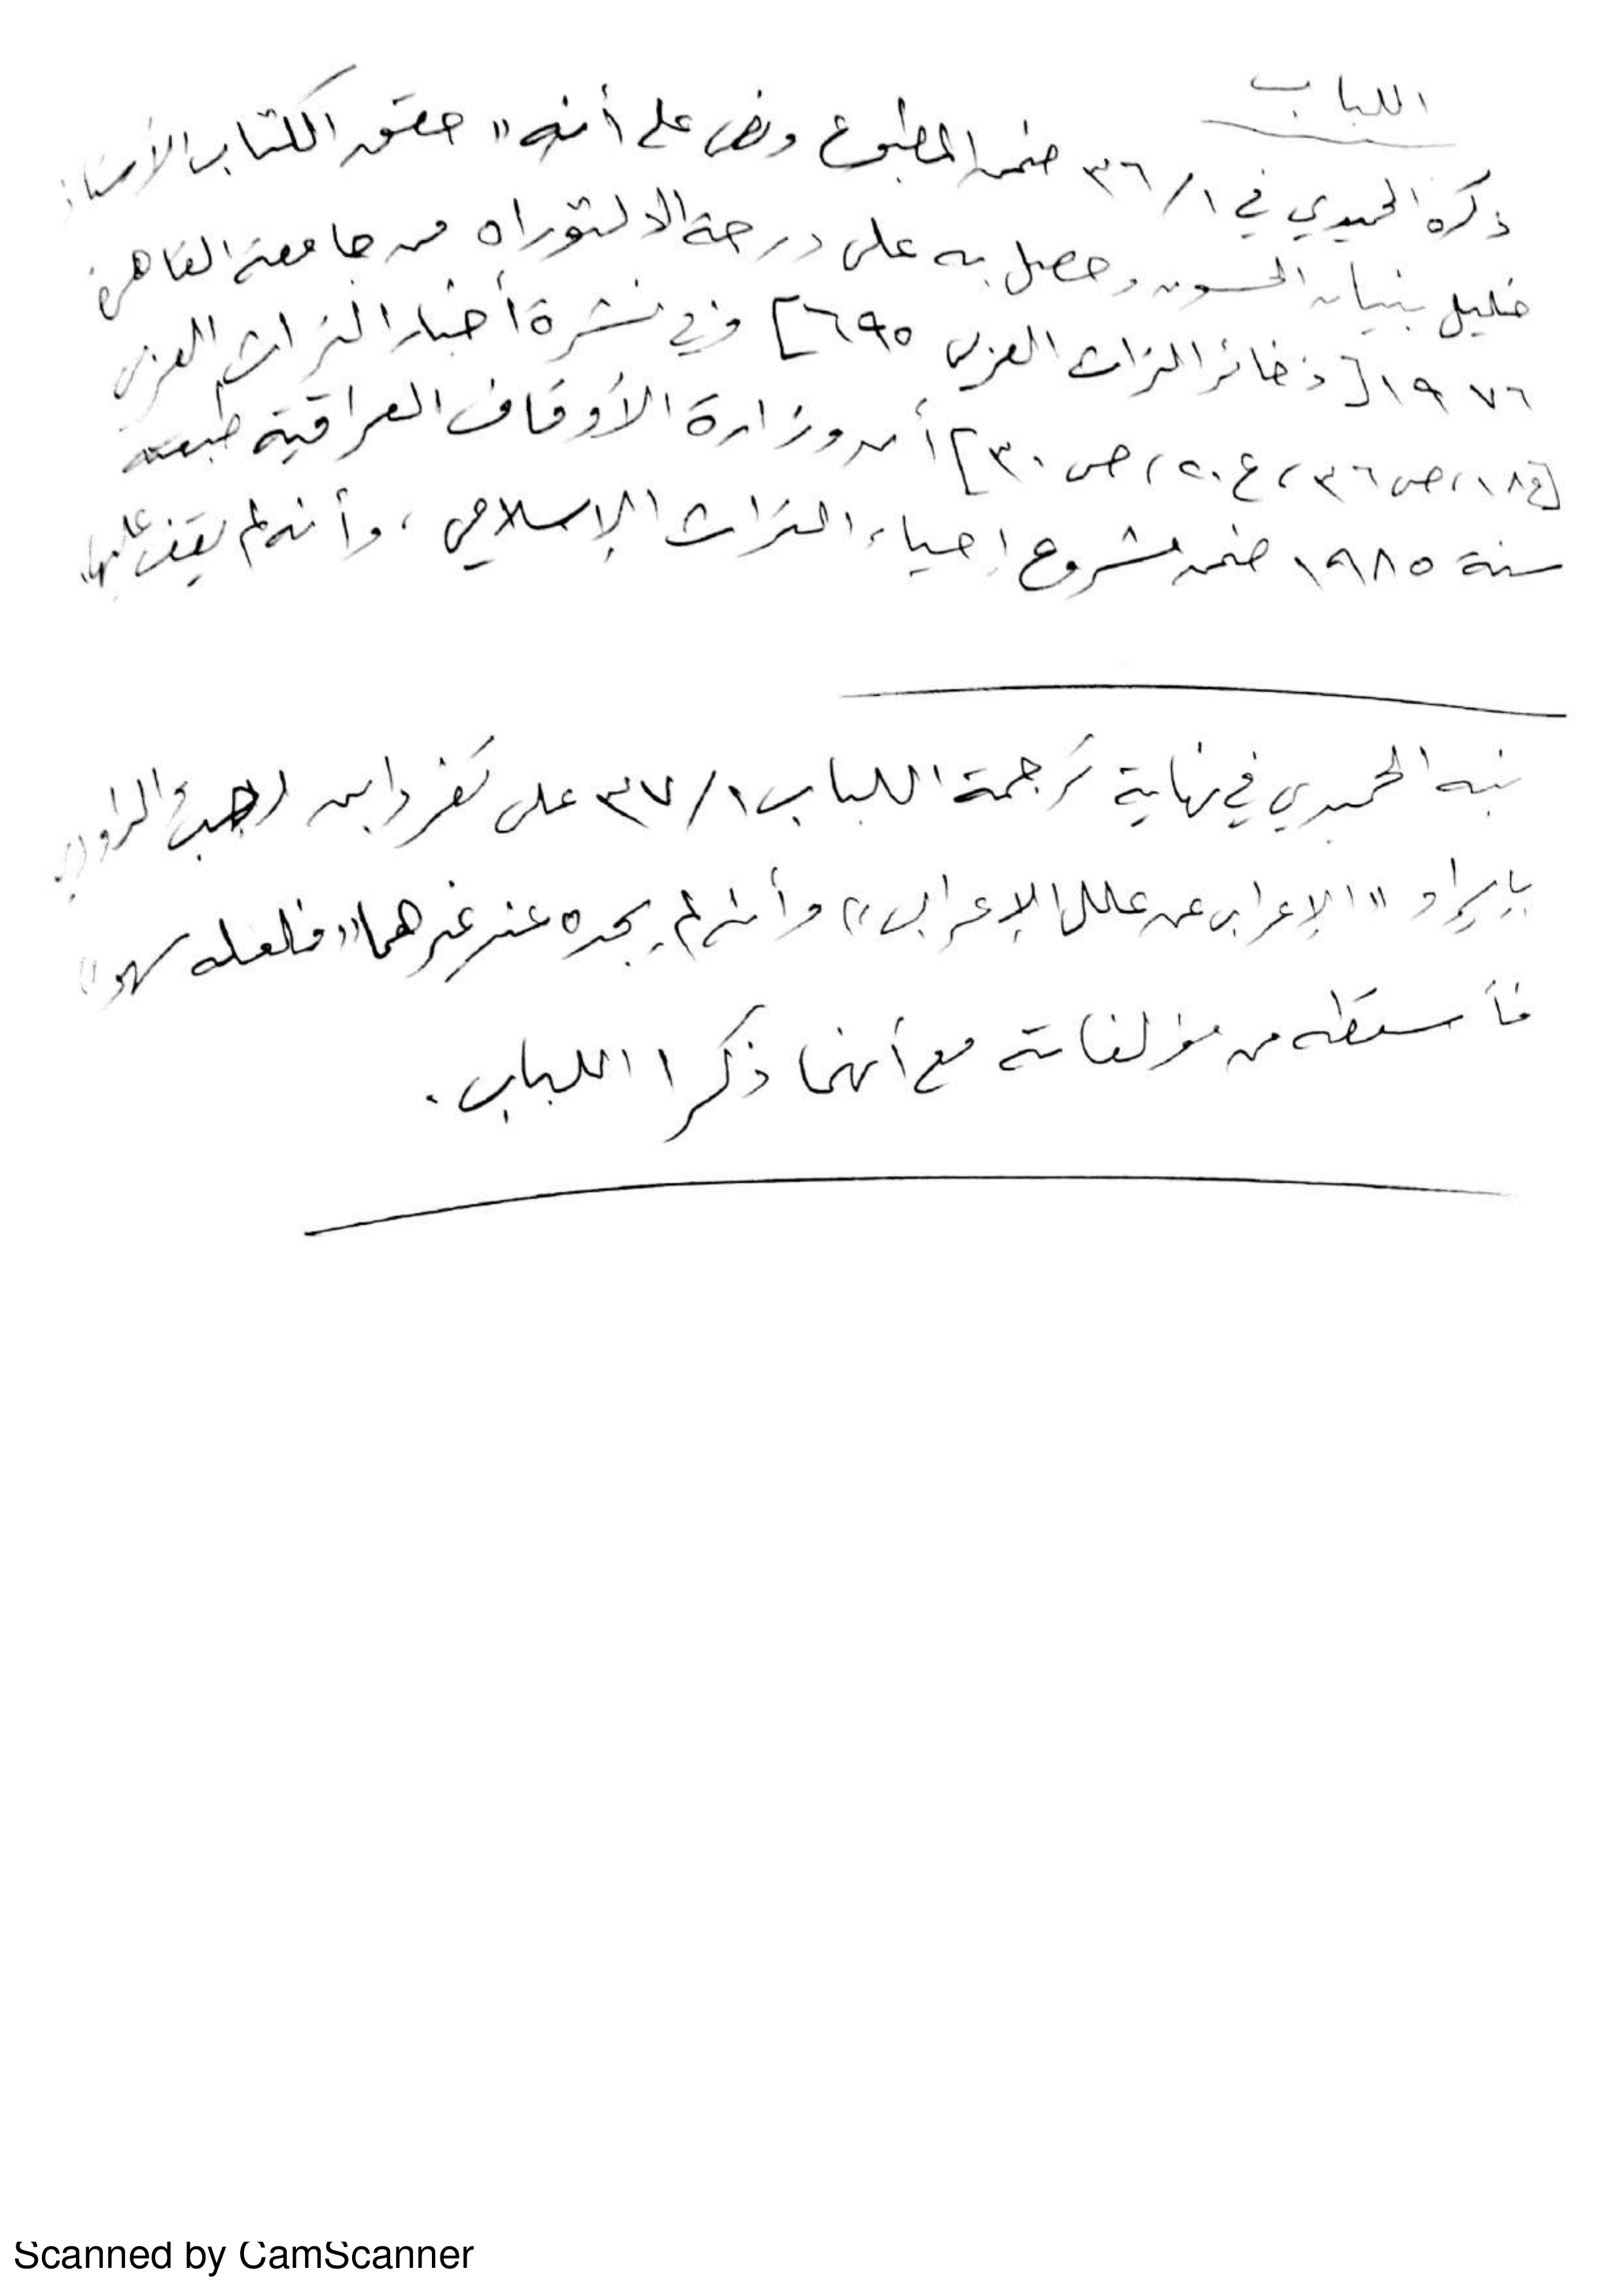 اللباب
ذكره الحميدي في ٣٦/١ ضمن المطبوع ونص على أنه "حقق الكتاب الأستاذ
خليل بنيان الحسون وحصل به على درجة الدكتوراه من جامعة القاهرة
١٩٧٦ [ذخائر التراث العربي ٦٩٥] وفي نشرة أخبار التراث العربي
[ع ١٨، ص ٣٦، ع ٢٠، ص ٣٠] أن وزارة الأوقاف العراقية طبعته
سنة ١٩٨٥ ضمن مشروع إحياء التراث الإسلامي، وأنه لم يقف عليها
نبه الحميدي في نهاية ترجمة اللباب ٣٧/١ على تفرد ابن رجب والداودي
بإيراد "الإعراب عن علل الإعراب" وأنه لم يجده عند غيرهما "فلعله سهو"
فأسقطه من مؤلفاته مع أنهما ذكرا اللباب.
Scanned by CamScanner